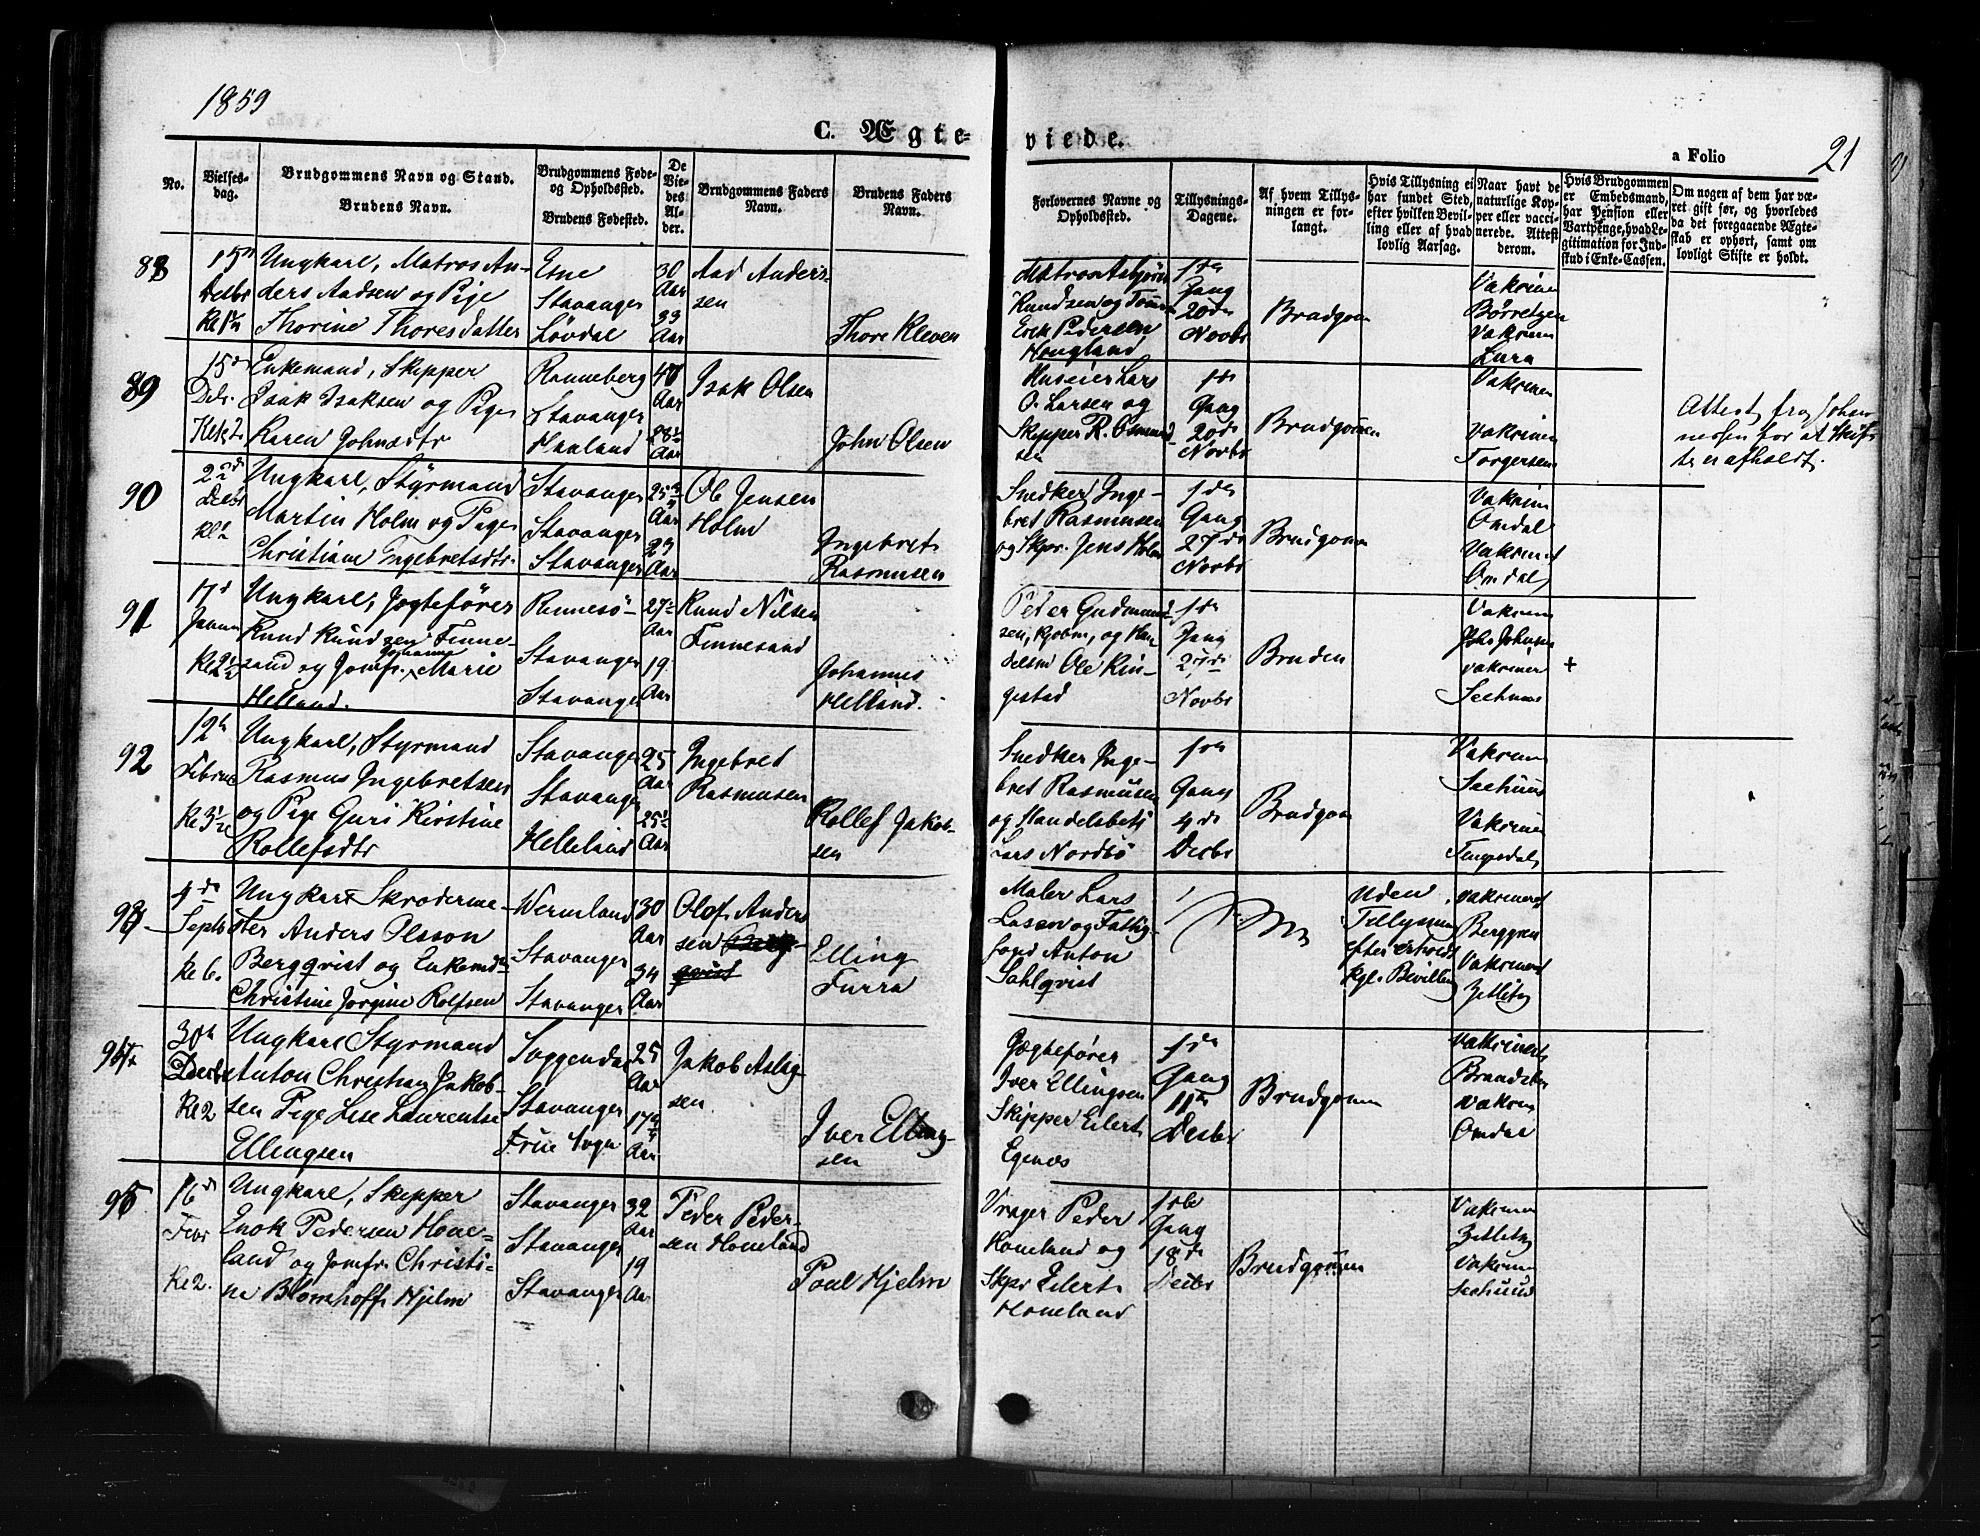 1859
C. Ægte-
viede.
a Folio
21
No.
Vielses-
dag.
Brudgommens Navn og Stand.
Brudens Navn.
Brudgommens Føde-
og Opholdssted.
Brudens Fødested.
De
Vie-
des
Al-
der.
Brudgommens Faders
Navn.
Brudens Faders
Navn.
Forlovernes Navne og
Opholdssted.
Tillysnings-
Dagene.
Af hvem Tillys-
ningen er for-
langt.
Hvis Tillysning ei
har fundet Sted,
efter hvilken Bevil-
ling eller af hvad
lovlig Aarsag.
Naar havt de
naturlige Kop-
per eller vacci-
nerede. Attest
derom.
Hvis Brudgommen
er Embedsmand,
har Pension eller
Vartpenge, hvad Le-
gitimation for Ind-
skud i Enke-Cassen.
Om nogen af dem har væ-
ret gift før, og hvorledes
da det foregaaende Ægte-
skab er ophørt, samt om
lovligt Skifte er holdt.
88
Decbr
Ungkarl, Matros An-
ders Aadsen og Pige
Thorine Thoresdatter
Etne
Stavanger
Løvdal
30
Aar
33
Aar
Aad Anders-
sen
Thore Kleven
Matros Asbjørn
Knudsen og
Erik Pedersen
Hougland
1ste
Gang
20de
Novbr
Brudgom
Vakcinen
Børretzen
Vakcinen
Lura
89
15d
Kl 2
Enkemand, Skipper
Isak Isaksen og Pige
Karen Johnsdtr
Renneberg
Stavanger
Haaland
40
Aar
28½
Aar
Isak Olsen
John Olsen
Huseier Lars
O. Larsen og
Skipper R. Osmund-
sen
1ste
Gang
20de
Novbr
Brudgommen
Vakcinen
Vakcinen
Torgersen
Attest fra Johan
nesen for at Skif
te er afholdt.
90
Decbr
Ungkarl, Styrmand
Martin Holm og Pige
Christiane Ingebretsdtr.
Stavanger
Stavanger
Stavanger
25¾
Aar
23
Aar
Ole Jensen
Holm
Ingebret
Rasmusen
Snedker Inge-
bret Rasmusen
og Skpr. Jens Holm
1ste
Gang
27de
Novbr
Brudgom
Vakcinen
Omdal
Vakcineret
Omdal
91
17d
Ungkarl, Jægtefører
Knud Knudsen Finne-
sand og Jomfr. Johanne Marie
Helland.
Rennesö
Stavanger
Stavanger
27½
Aar
19
Aar
Knud Nilsen
Finnesand
Johannes
Helland.
Peder Gudmund-
sen, Kjøbm, og Han-
delsm Ole Rin-
gestad
1ste
Gang
27de
Novbr
Bruden
Vakcinen
Johs Johnsen
vakciner
Seehuus
+
92
12te
Februar
Kl 3½
Ungkarl, Styrmand
Rasmus Ingebretsen
og Pige Guri Kirstine
Rollefsdtr
Stavanger
Stavanger
Helleland
25
Aar
25½
Aar
Ingebret
Rasmusen
Rollef Jakob-
sen
Snedker Inge-
bret Rasmusen
og Handelsbetj
Lars Nordbö
1ste
Gang
4de
Decbr
Brudgom
Vakcinen
Seehuus
Vakcinen
Tengesdal
93
4de
Septb
Kl 6.
Ungkarl Skræderme-
ster Anders Olsson
Bergqvist og Enkemd
Christine Jorgine Rolfsen
Wermland
Stavanger
Stavanger
30
Aar
34
Aar
Olof Anders
sen Berg-
qvist
Elling
Furra
Maler Lars
Lassen og Fattig-
fogd Anton
Sahlqvist
Uden
Tillysning
efter erholdt
kgl. Bevilling
vakcineret
Berggren
Vakcineret
Zetlitz
94
30te
Decbr
Kl 2
Ungkarl Styrmand
Anton Christian Jakob-
sen Pige Lise Laurentse
Ellingsen
Soggendal
Stavanger
Frue Sogn
25
Aar
17¾
Aar
Jakob Aslag-
sen
Iver Elling-
sen
Jægtefører
Iver Ellingsen
Skipper Eilert
Egenæs
1ste
Gang
11te
Decbr
Brudgommen
Vakcineret
Brandzber
Vakcin
Omdal
95
16d
Kl 2.
Ungkarl, Skipper
Enok Pedersen Hone-
land og Jomfr. Christi-
ne Blomhoff Hjelm
Stavanger
Stavanger
Stavanger
32
Aar
19
Aar
Peder Peder-
sen Honeland
Poul Hjelm
Vrager Peder
Honeland og
Skpr Eilert
Honeland
1ste
Gang
18de
Decbr
Brudgommen
Vakcinen
Zetlitz
Vakcinen
Seehuus